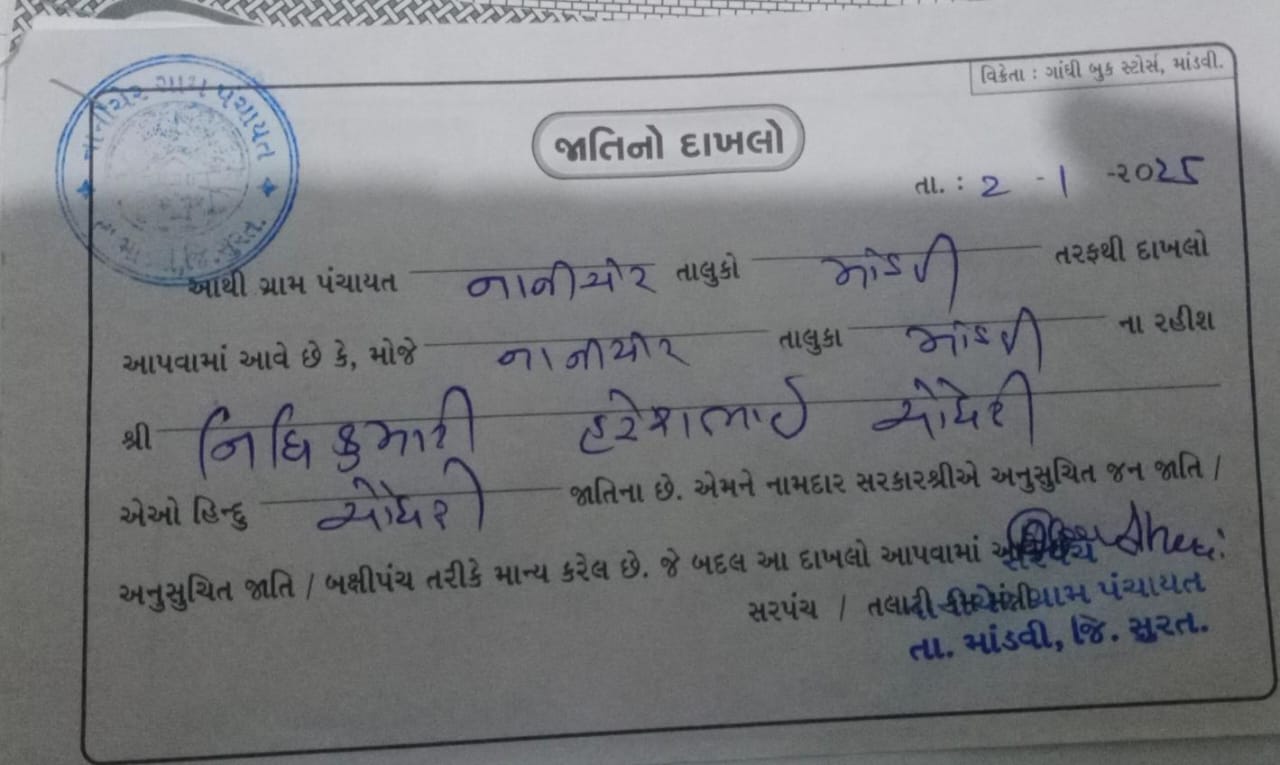 વિક્રેતા : ગાંધી બુક સ્ટોર્સ, માંડવી.
નાનીચેર ગ્રામ પંચાયત
જિ. સુરત.
જાતિનો દાખલો
તા. : 2 - 1 -૨૦25
આથી ગ્રામ પંચાયત નાનીચેર તાલુકો માંડવી તરફથી દાખલો
આપવામાં આવે છે કે, મોજે નાનીચેર તાલુકા માંડવી ના રહીશ
શ્રી નિધિકુમારી હરેશભાઇ ચૌધરી
એઓ હિન્દુ ચૌધરી જાતિના છે. એમને નામદાર સરકારશ્રીએ અનુસુચિત જન જાતિ /
અનુસુચિત જાતિ / બક્ષીપંચ તરીકે માન્ય કરેલ છે. જે બદલ આ દાખલો આપવામાં
સરપંચ / તલાટી ગ્રામ પંચાયત
તા. માંડવી, જિ. સુરત.